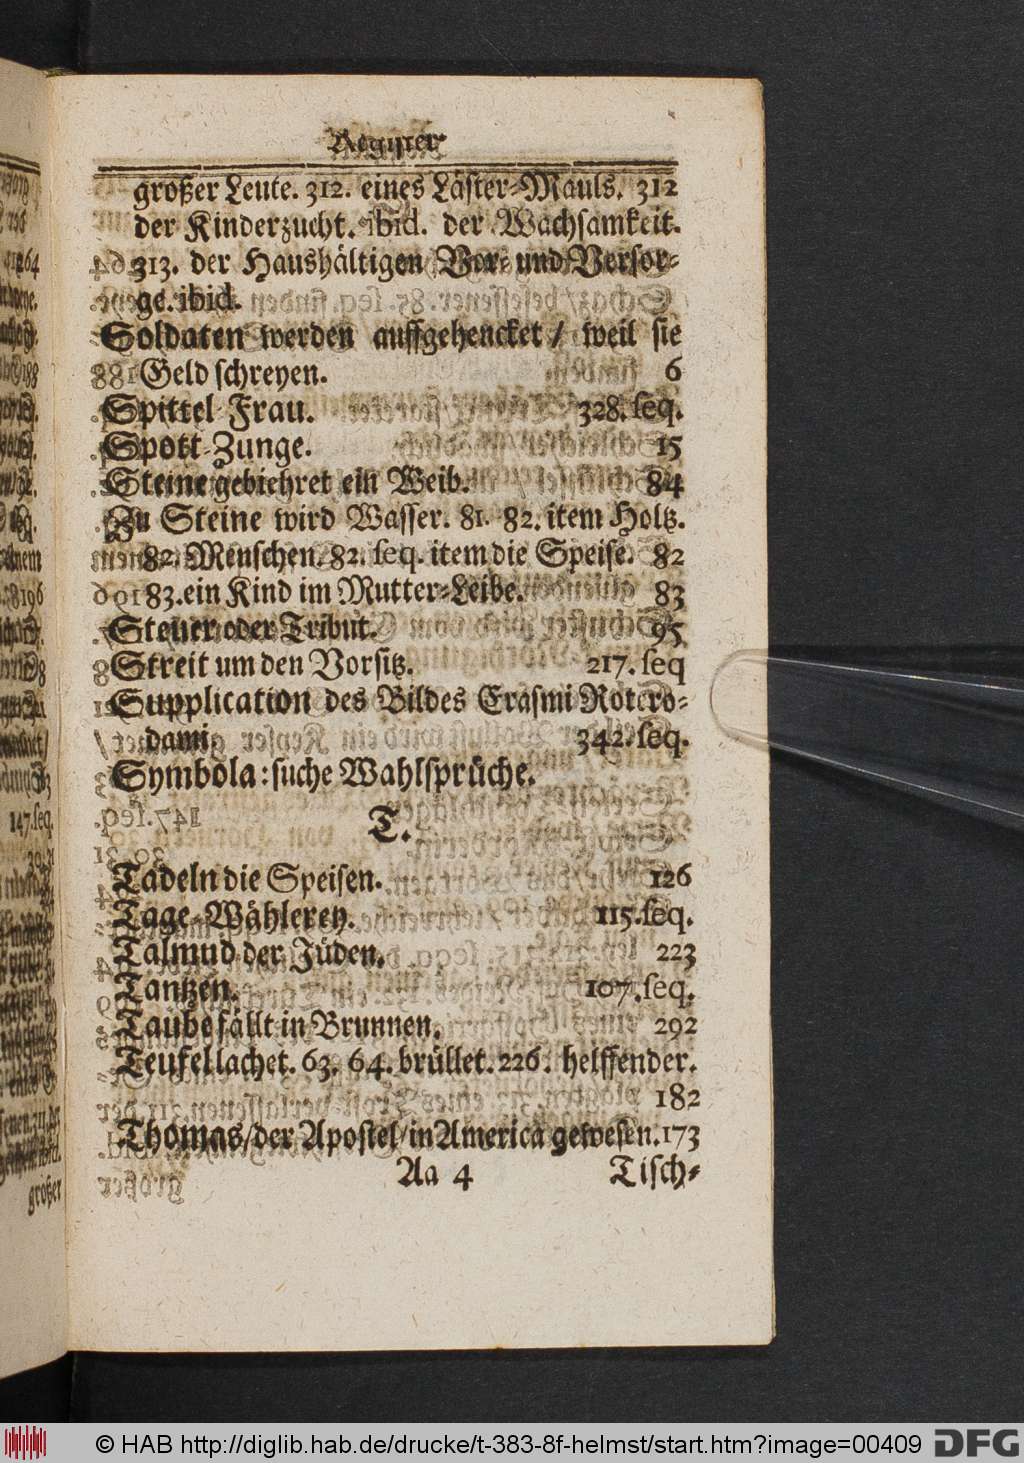 Register
großer Leute. 312. eines Läster-Mauls. 312
der Kinderzucht. ibid. der Wachsamkeit.
313. der Haushältigen Vor- und Versor-
ge. ibid.
Soldaten werden auffgehencket / weil sie
Geld schreyen. 6
Spittel-Frau. 328. seq.
Spott-Zunge. 15
Steine gebiehret ein Weib. 84
Zu Steine wird Wasser. 81. 82. item Holtz.
82. Menschen. 82. seq. item die Speise. 82
83. ein Kind im Mutter-Leibe. 83
Steuer oder Tribut. 95
Streit um den Vorsitz. 217. seq
Supplication des Bildes Erasmi Rotero-
dami 342. seq.
Symbola: suche Wahlsprüche.
T.
Tadeln die Speisen. 126
Tage-Wählerey. 115. seq.
Talmud der Jüden. 223
Tantzen. 107. seq.
Taube fällt in Brunnen. 292
Teufel lachet. 63. 64. brüllet. 226. helffender.
182
Thomas/ der Apostel/ in America gewesen. 173
Aa 4 Tisch-
© HAB http://diglib.hab.de/drucke/t-383-8f-helmst/start.htm?image=00409 DFG